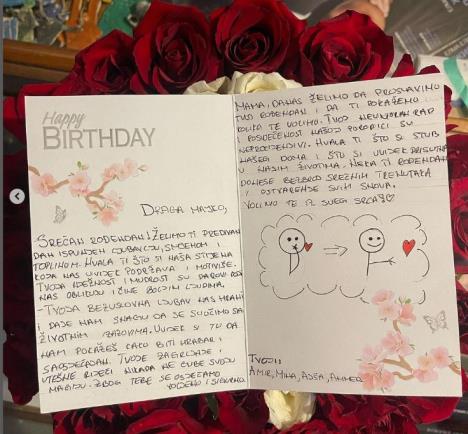 Happy
BIRTHDAY
DRAGA MAJKO,
SREĆAN ROĐENDAN! ŽELIMO TI PREDIVAN
DAN ISPUNJEN LJUBAVLJU, SMIJEHOM I
TOPLINOM. HVALA TI ŠTO SI NAŠA STIJENA
KOJA NAS UVIJEK PODRŽAVA I MOTIVIŠE.
TVOJA NJEŽNOST I MUDROST SU DAROVI KOJI
NAS OBLIKUJU I ČINE BOLJIM LJUDIMA.
- TVOJA BEZUSLOVNA LJUBAV NAS HRANI
I DAJE NAM SNAGU DA SE SUOČIMO SA
ŽIVOTNIM IZAZOVIMA. UVIJEK SI TU DA
NAM POKAŽEŠ KAKO BITI HRABAR I
SAOSJEĆAJAN. TVOJE ZAGRLJAJE I
UTJEŠNE RIJEČI NIKADA NE GUBE SVOJU
MAGIJU. ZBOG TEBE SE OSJEĆAMO
VOLJENO I SIGURNO.
MAMA, DANAS ŽELIMO DA PROSLAVIMO
TVOJ ROĐENDAN I DA TI POKAŽEMO
KOLIKO TE VOLIMO. TVOJ NEUMORAN RAD
I POSVEĆENOST NAŠOJ PORODICI SU
NEPROCJENJIVI. HVALA TI ŠTO SI STUB
NAŠEG DOMA I ŠTO SI UVIJEK PRISUTNA
U NAŠIM ŽIVOTIMA. NEKA TI ROĐENDAN
DONESE BEZBROJ SREĆNIH TRENUTAKA
I OSTVARENJE SVIH SNOVA.
VOLIMO TE IZ SVEG SRCA!
TVOJI:
AMIR, MINA, AJŠA, AHMED